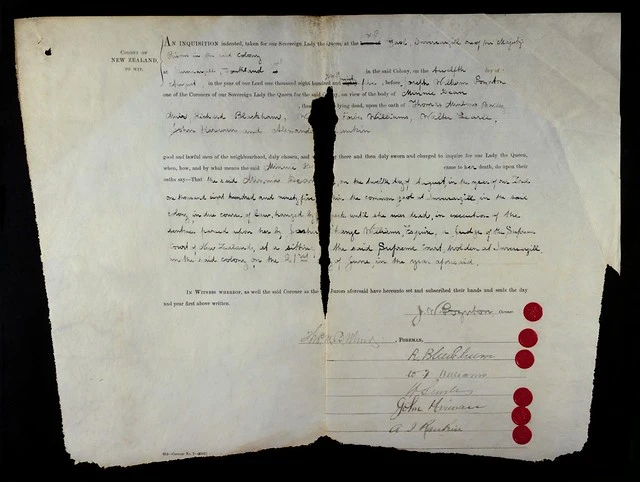 COUNTY OF
NEW ZEALAND,
TO WIT.
AN INQUISITION indented, taken for our Sovereign Lady the Queen, at the Gaol, Invercargill one of Her Majesty's
Prisons in the said colony
at Invercargill Southland in the said Colony, on the twelfth day of
August in the year of our Lord one thousand eight hundred and ninety five, before, Joseph William Poynton
one of the Coroners of our Sovereign Lady the Queen for the said Colony, on view of the body of Minnie Dean
lying dead, upon the oath of Thomas
Richard Blackham, Williams, Walter Searle,
John Harrison and Rankin
good and lawful men of the neighbourhood, duly chosen, and there and then duly sworn and charged to inquire for our Lady the Queen,
when, how, and by what means the said Minnie came to her death, do upon their
oaths say—That the said Minnie Dean, on the twelfth day of August, in the year of our Lord
one thousand eight hundred and ninety five, in the common gaol at Invercargill in the said
colony, in due course of law, hanged by neck until she was dead, in execution of the
sentence passed upon her by Joshua Strange Williams, Esquire, a Judge of the Supreme
Court of New Zealand, at a sitting the said Supreme Court, holden at Invercargill,
in the said colony, on the 21st of June, in the year aforesaid.
IN WITNESS whereof, as well the said Coroner as the Jurors aforesaid have hereunto set and subscribed their hands and seals the day
and year first above written.
J. W. Poynton Coroner
, FOREMAN.
R. Blackham
W J Williams
W Searle
John Harrison
A J Rankin